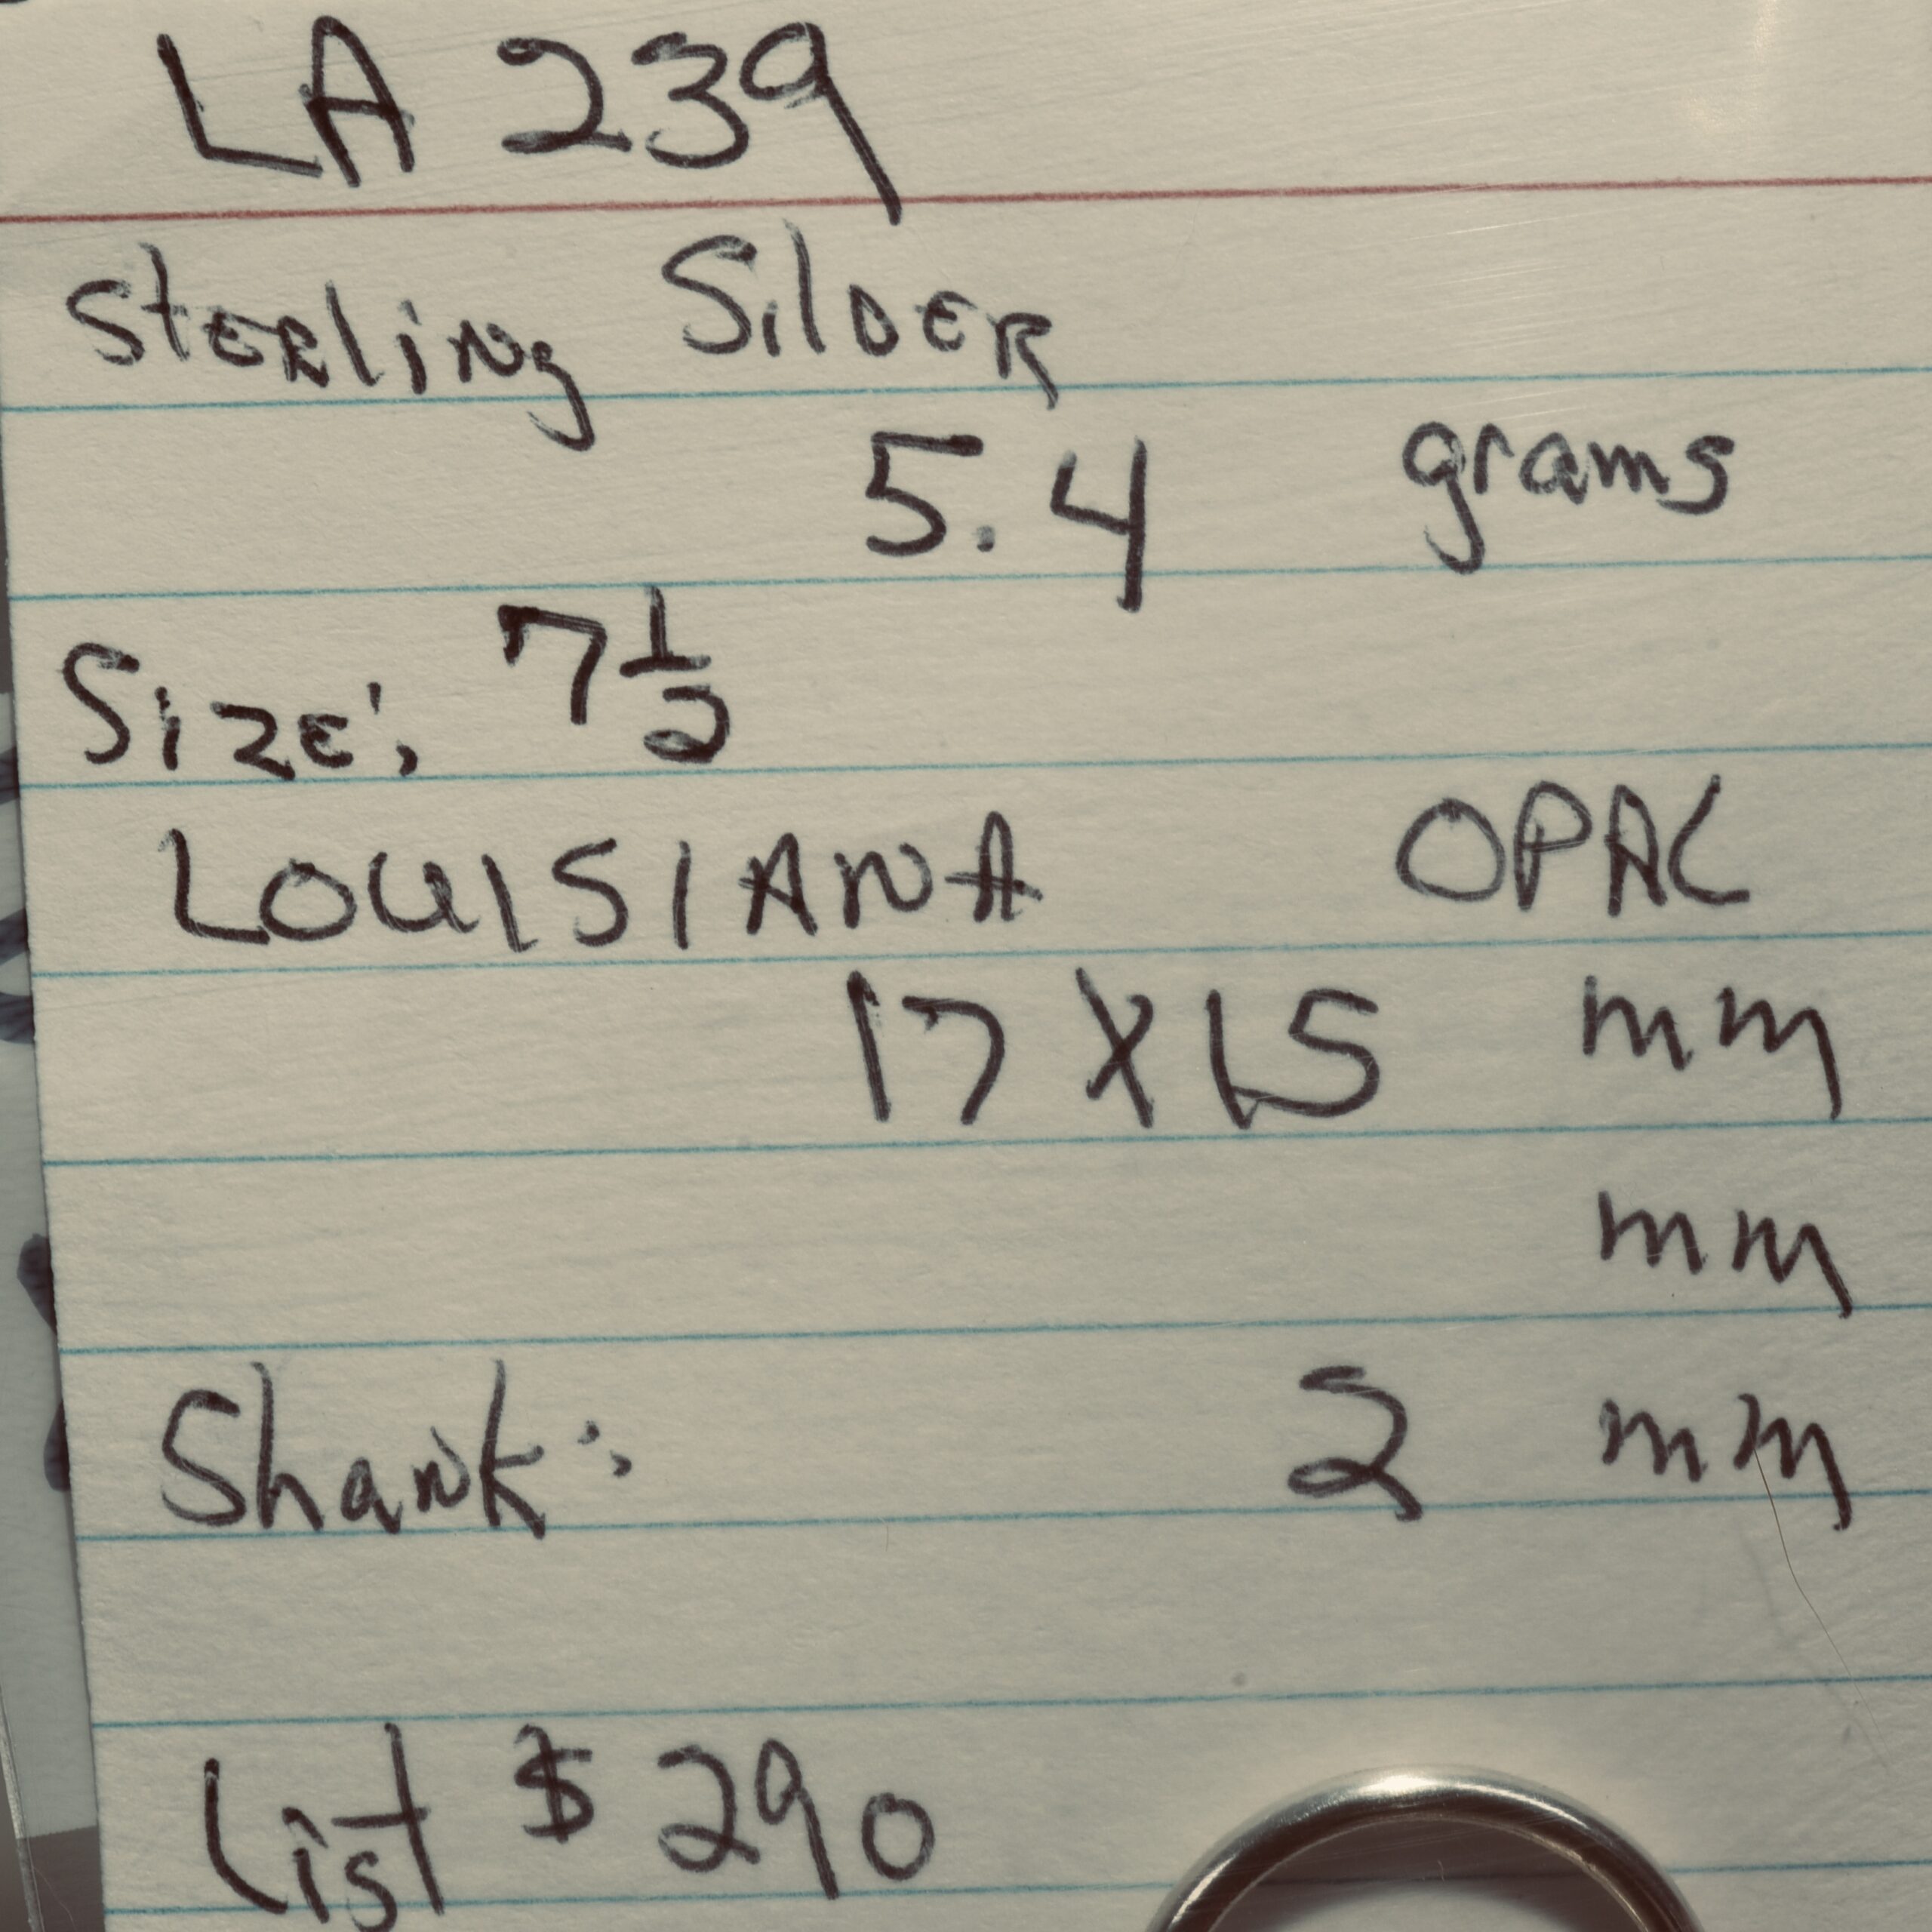 LA 239
Sterling Silver
5.4 grams
Size: 7 1/2
LOUISIANA OPAL
17 X 15 mm
mm
Shank: 2 mm
List $ 290